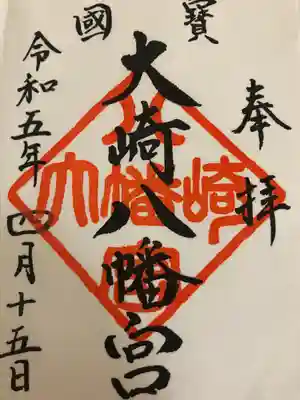 國寶
奉拝
大崎八幡宮
令和五年四月十五日